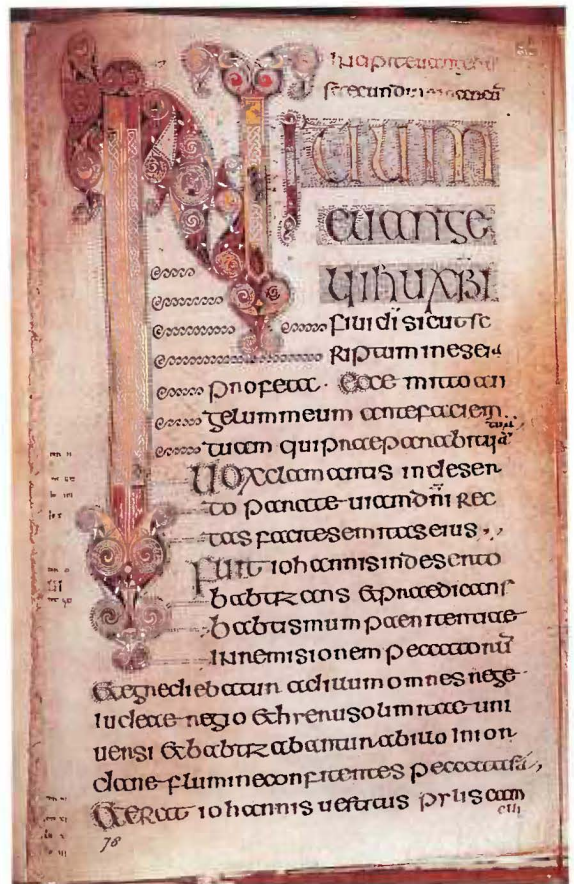 Incipit euangelium
secundum marcum
INITIUM
EUANGE
LII IHU XPI
FILII DI SICUT SC
RIPTUM IN ESEIA
profeta · Ecce mitto an
gelum meum ante faciem
tuam qui praeparabit uiā
tuā
Uox clamantis in deser
to parate uiam dn̄i rec
tas facite semitas eius ·,
Fuit iohannis in deserto
babtizans & praedicans
babtismum paenitentiae
in remisionem peccatorū
& egrediebatur ad illum omnes
iudeae regio & hierusolimitae uni
uersi & babtizabantur ab illo in ior
dane flumine confitentes peccata sua,
& ERat iohannis uestitus pylis cam
eli
78